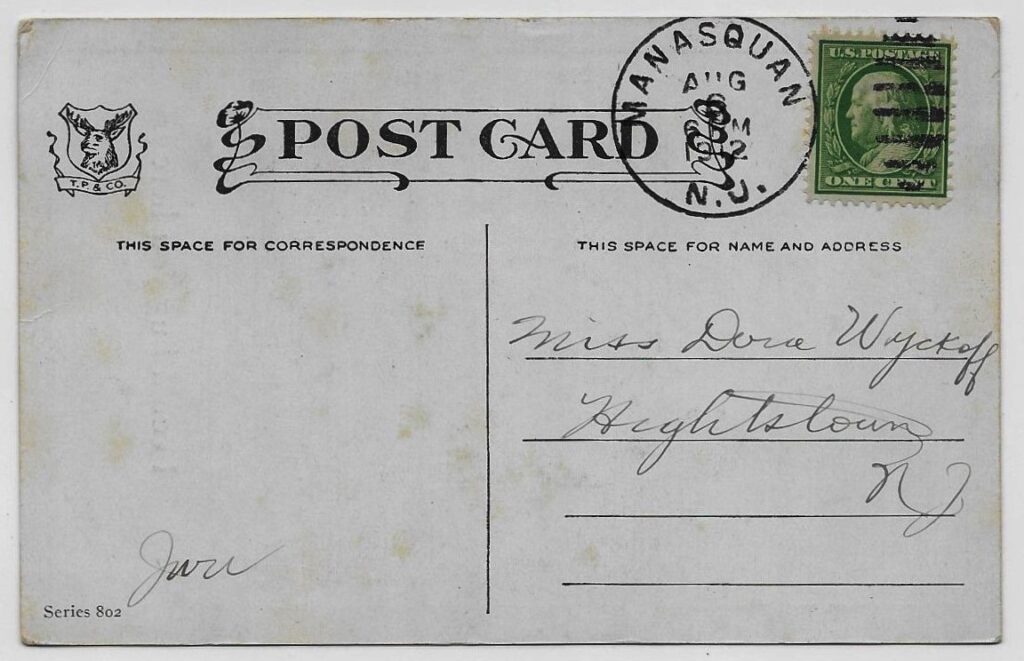 MANASQUAN
AUG
N.J.
U.S. POSTAGE
ONE CENT
T. P. & CO.
POST CARD
THIS SPACE FOR CORRESPONDENCE
THIS SPACE FOR NAME AND ADDRESS
Miss Dora Wyckoff
Hightstown
NJ
Series 802